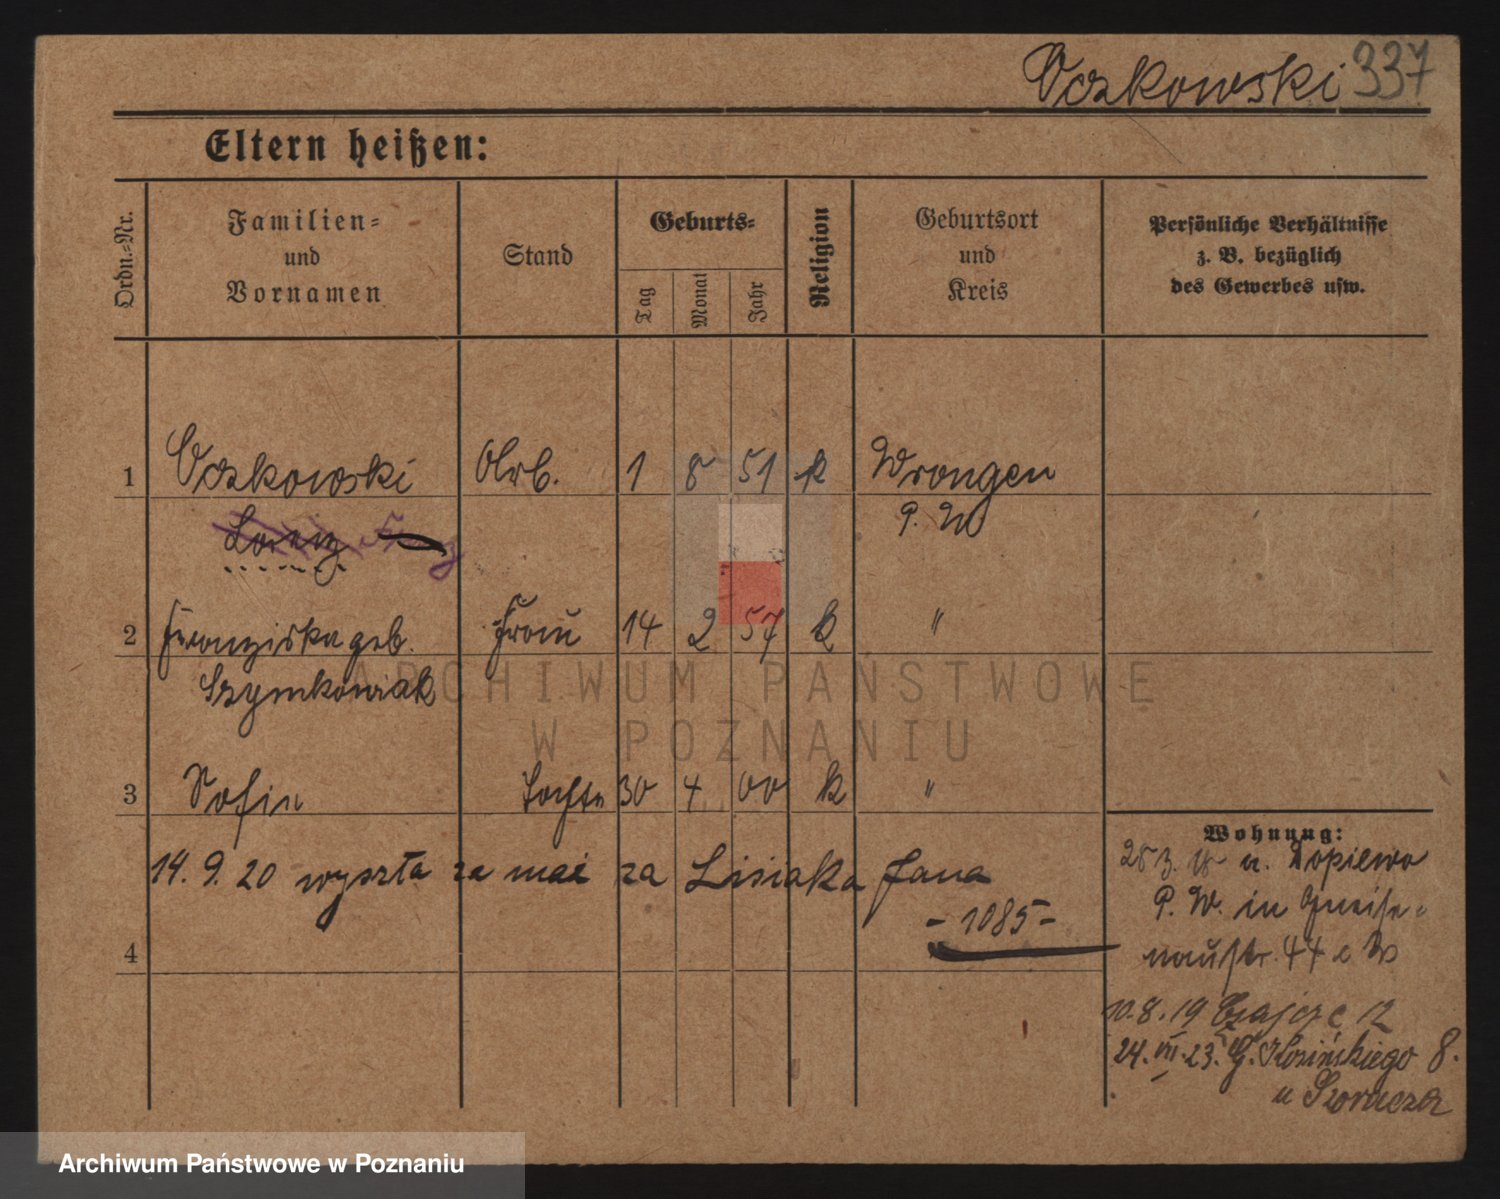 Oczkowski 337
Eltern heißen:
Ordn.-Nr.
Familien- und Vornamen
Stand
Geburts-
Tag
Monat
Jahr
Religion
Geburtsort und Kreis
Persönliche Verhältnisse z. B. bezüglich des Gewerbes usw.
1 Oczkowski Arb. 1 8 51 k
P. W
2 Franziska geb. Frau 14 2 57 k "
Szymkowiak
3 Sofia Tochter 30 4 00 k "
Wohnung:
14. 9. 20 wyszła za mąż za Lisiaka Jana
n. Dopiewo
- 1085 -
P. W. in Gneise-
4
naustr. 44
10.8.19
24. VII. 23. G. Kosińskiego 8.
u
ARCHIWUM PAŃSTWOWE
W POZNANIU
Archiwum Państwowe w Poznaniu